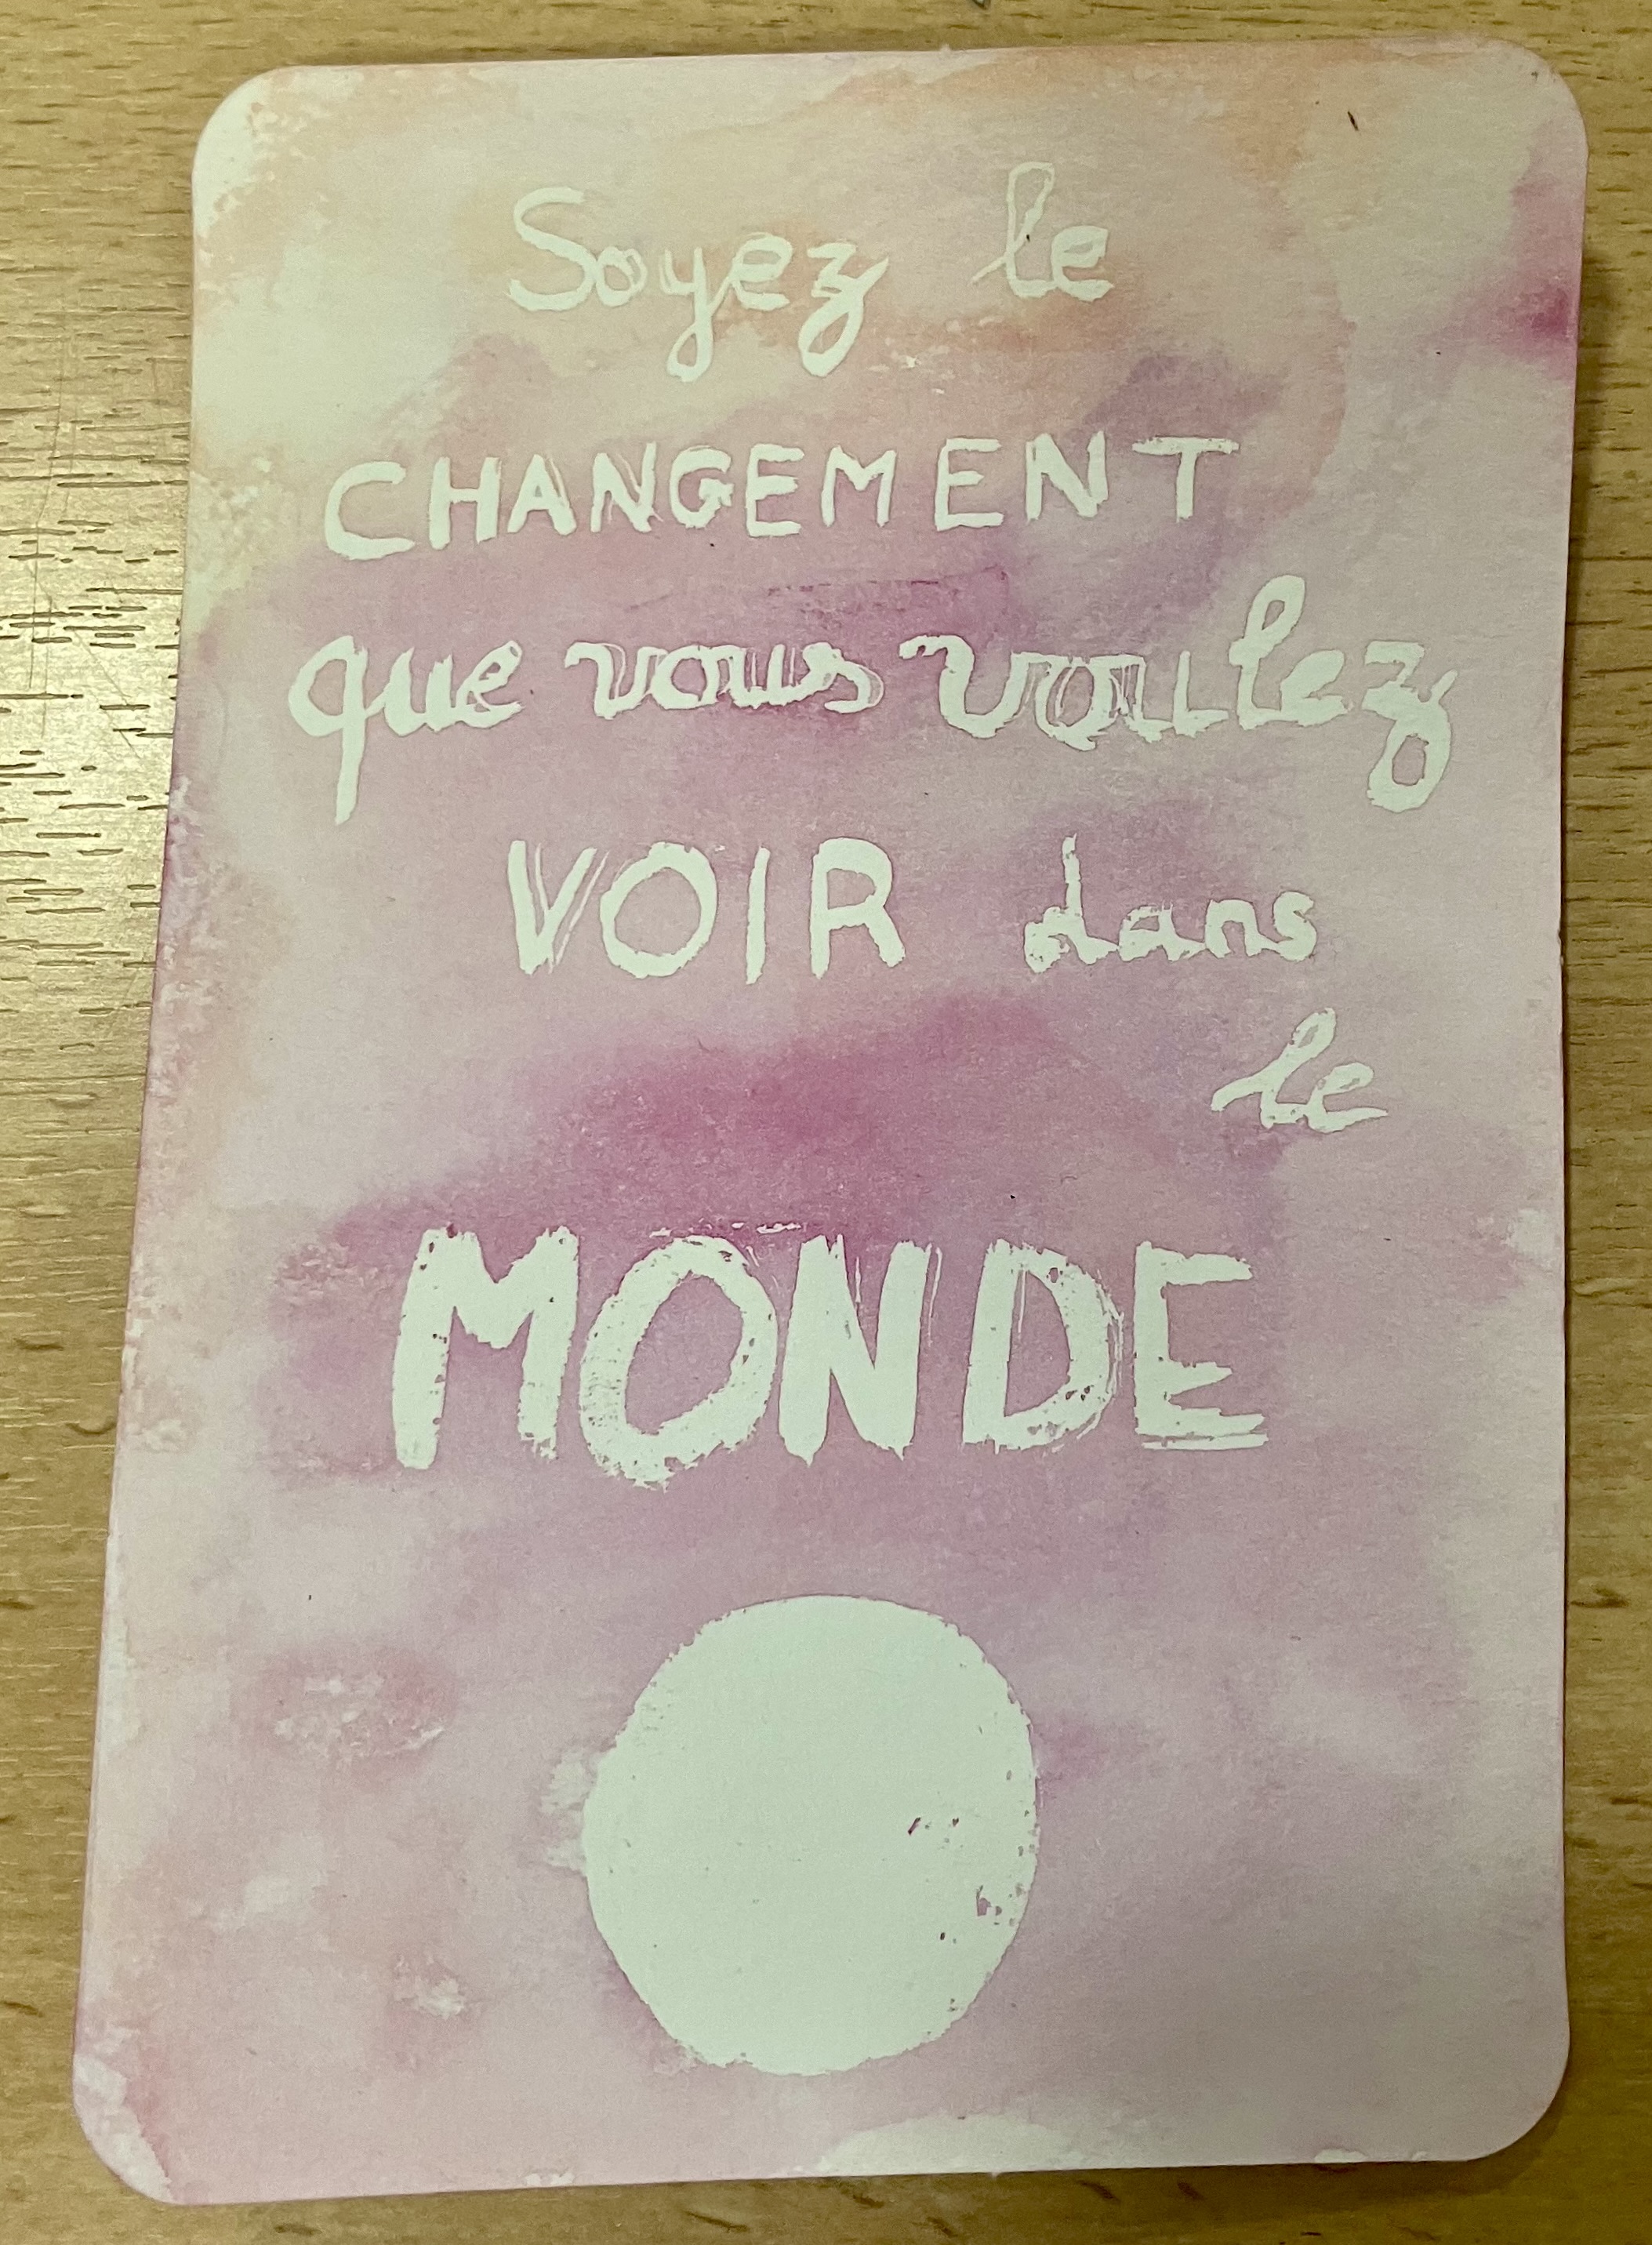 Soyez le
CHANGEMENT
que vous voulez
VOIR dans
le
MONDE